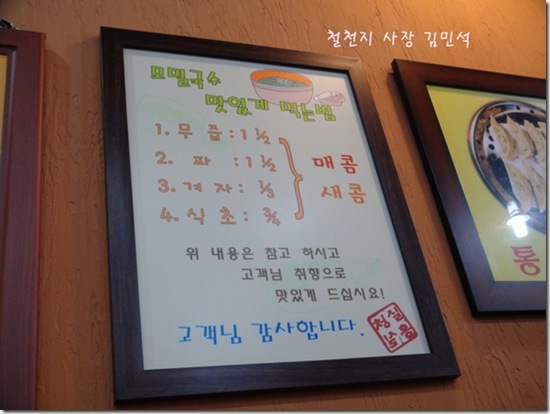 철천지 사장 김민석
모밀국수
맛있게 먹는법
1. 무 즙 : 1 ½
2. 파 : 1 ½
3. 겨자 : ⅓
4. 식초 : ¾
매콤
새콤
위 내용은 참고 하시고
고객님 취향으로
맛있게 드십시요!
고객님 감사합니다.
통